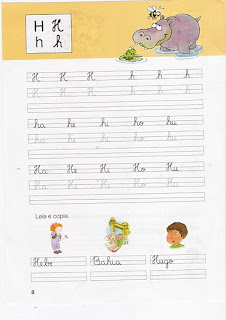 H H
h h
H H H h h h
H H H h h h
ha he hi ho hu
ha he hi ho hu
Ha He Hi Ho Hu
Ha He Hi Ho Hu
Leia e copie.
Hebe Bahia Hugo
8